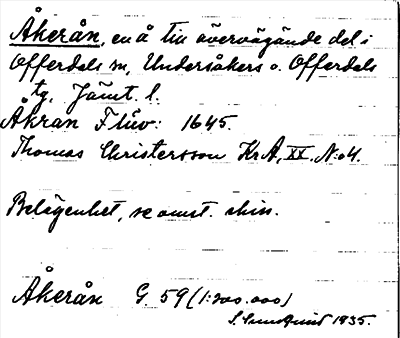 Åkerån, en å till övervägande del i
Offerdals sn, Undersåkers o. Offerdals
tg, Jämt. l.
Åkran Flüv: 1645.
Thomas Christersson KrA, XX. N:o 4.
Belägenhet, se omst. skiss.
Åkerån G. 59 (1:200.000)
1935.